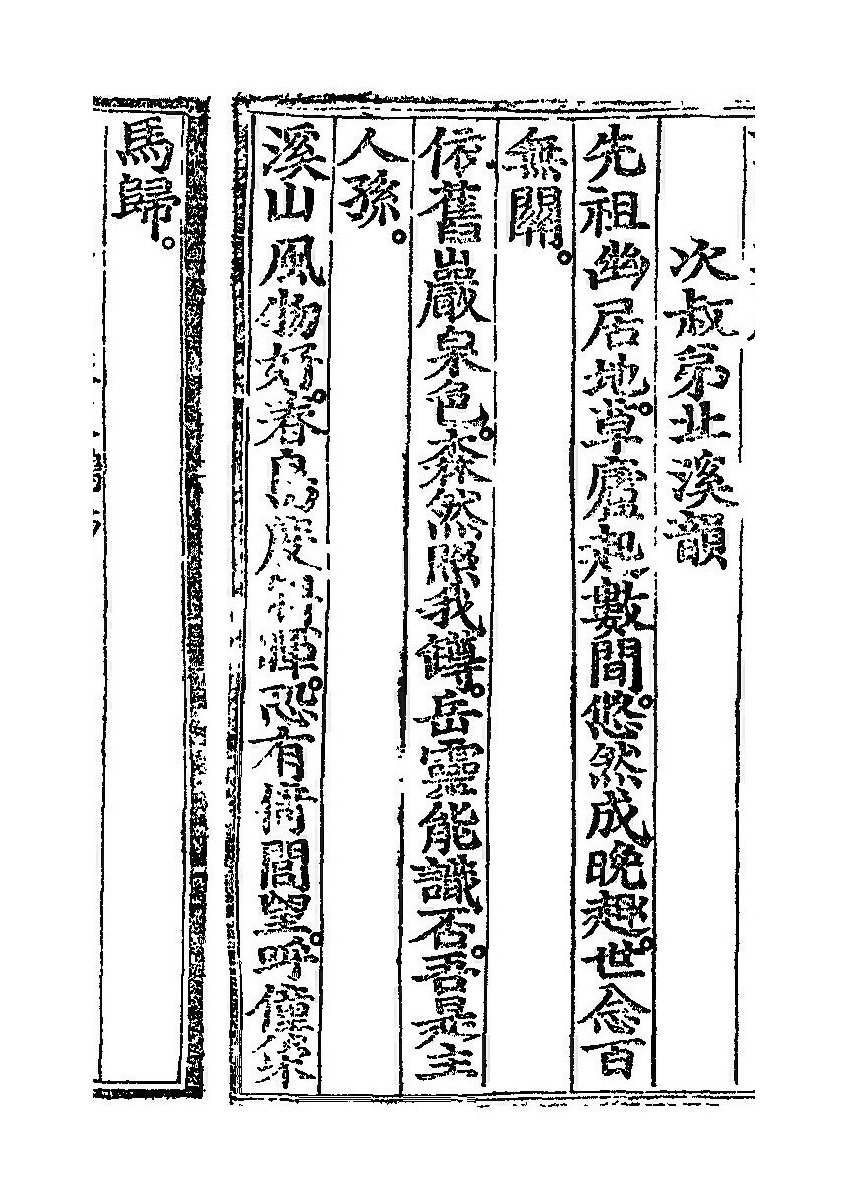 次叔弟北溪韻
先祖幽居地。草廬起數間。悠然成晚趣。世念百
無關。
依舊巖泉色。森然照我罇。岳靈能識否。吾是主
人孫。
溪山風物好。春鳥慶暉。恐有倚閭望。呼僮策
馬歸。